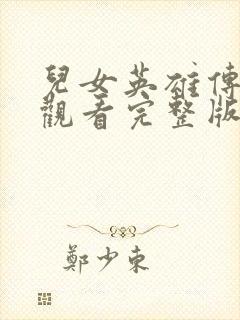 兒女英雄傳
觀看完整版
鄭少東